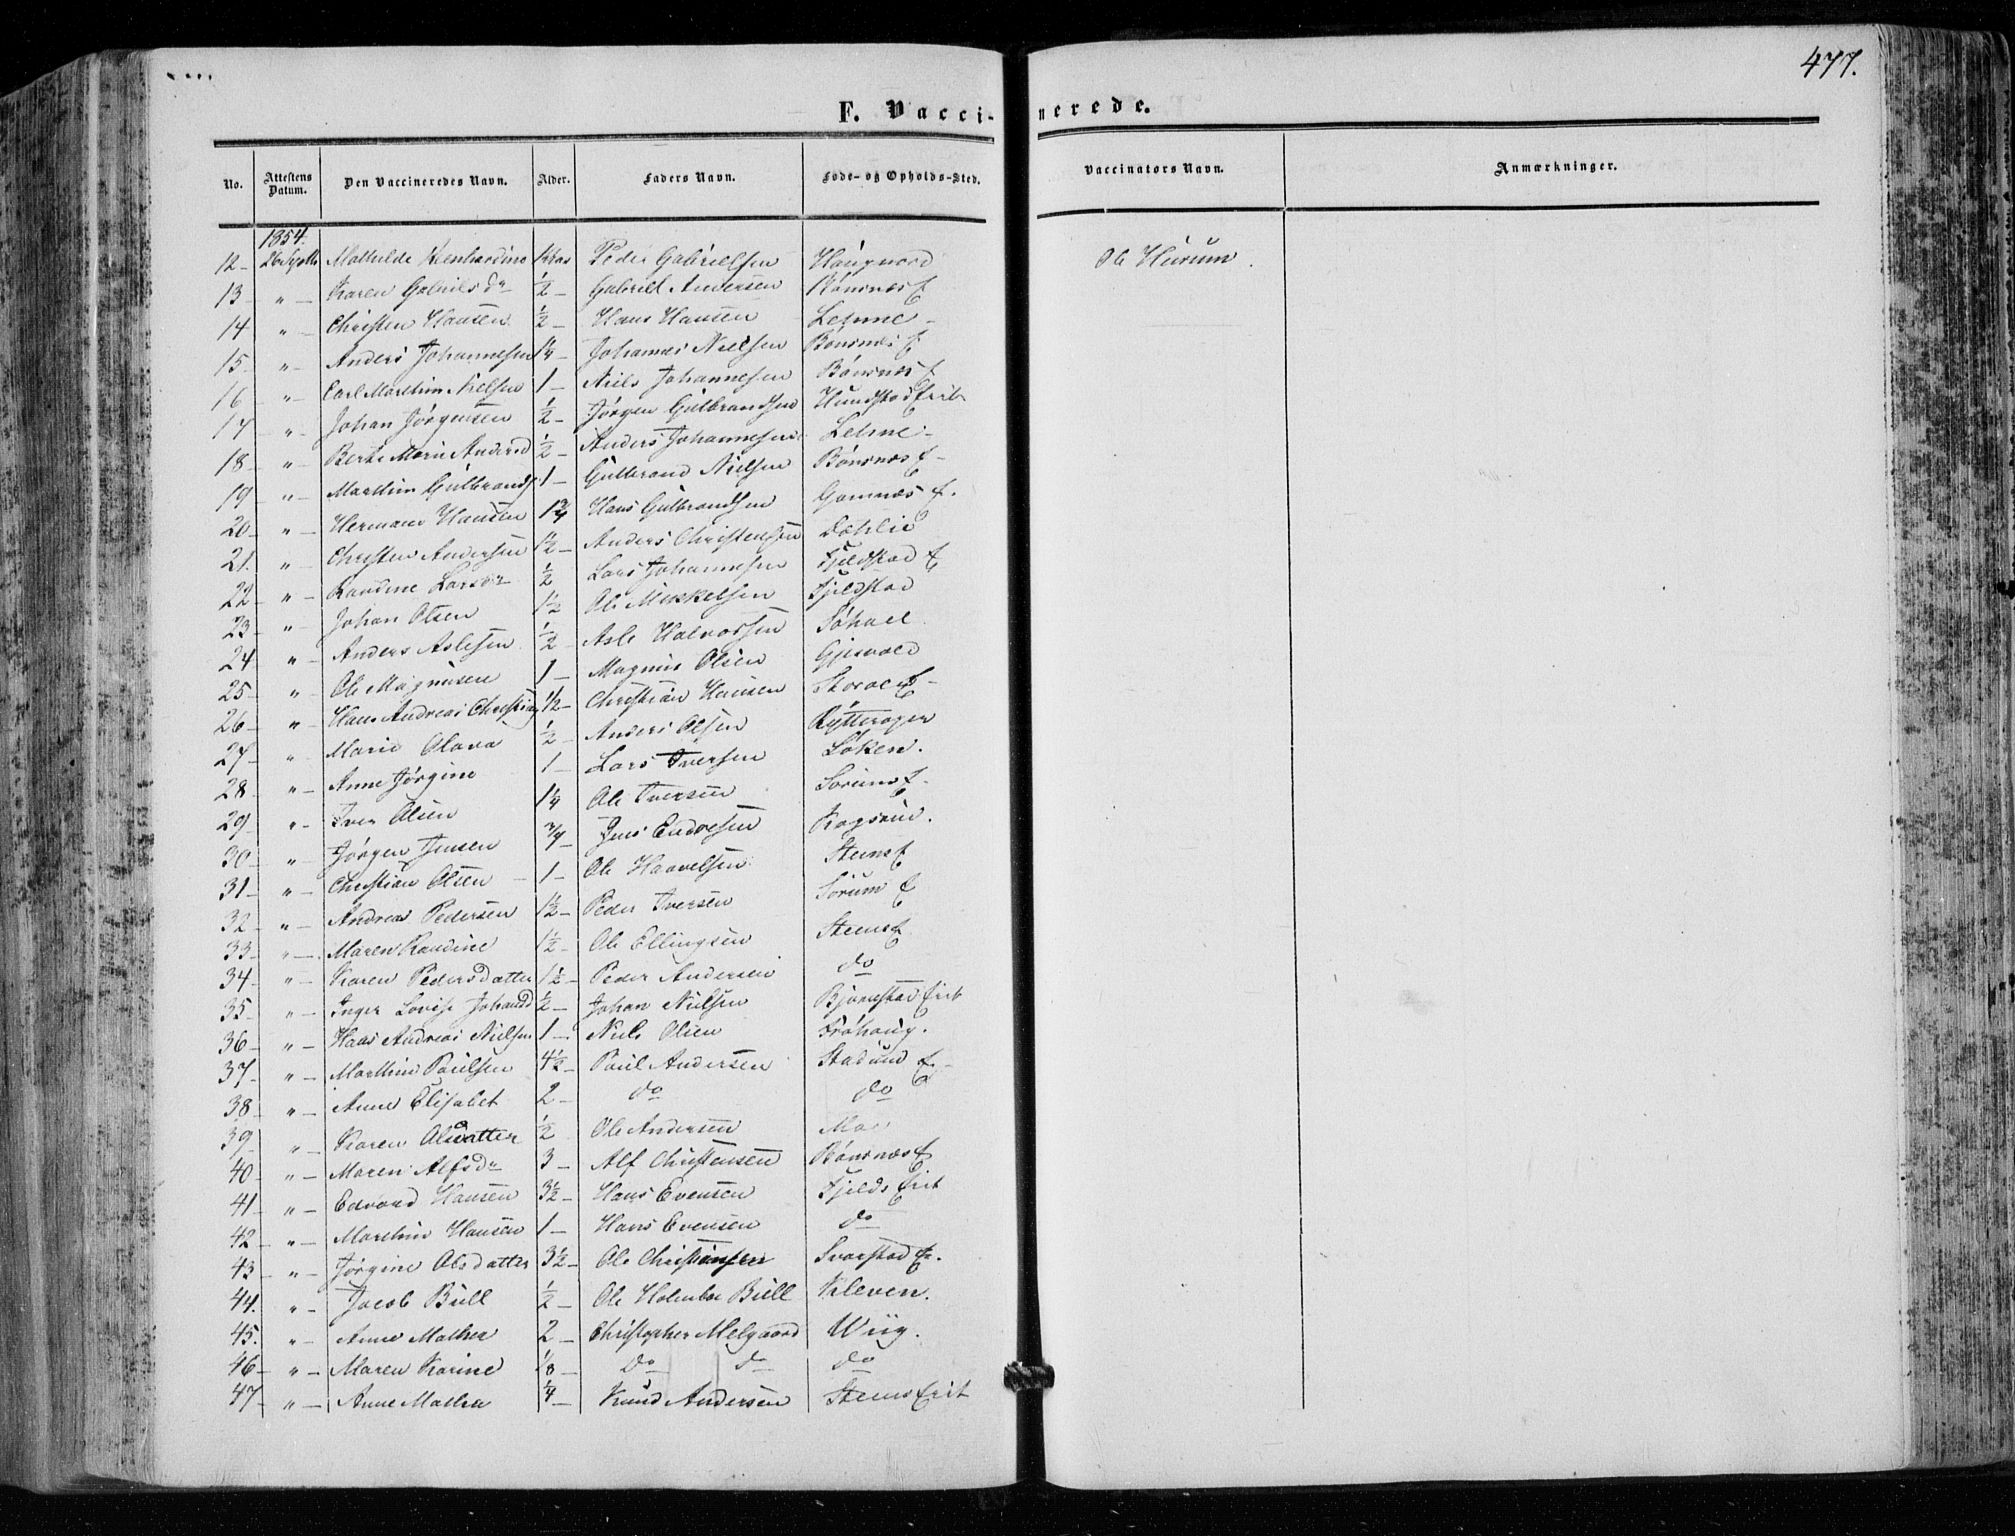 477.
F. Vaccinerede.
No. Attestens Datum. Den Vaccineredes Navn. Alder. Faders Navn. Føde- og Opholds-Sted. Vaccinators Navn. Anmærkninger.
1854.
12 - Mathilde Peder Gabrielsen Haugnord Ol Hurum
13 - " - Karen Gabrielsdr ½ - Gabriel Andersen Bønsnæs E
14 - " - Christen Hansen ½ - Hans Hansen Lehne -
15 - " - Anders Johannesen 1¼ - Johannes Nielsen Bønsnæs E
16 - " - Carl Marthin Nielsen 1 - Niels Johannesen Bønsnæs E
17 - " - Johan Jørgensen ½ - Jørgen Gulbrandsen Hundstad Erit
18 - " - Berte Marie Andersd ½ - Anders Johannesen Lehne -
19 - " - Marthin Gulbrands 1 - Gulbrand Nielsen Bønsnæs E -
20 - " - Herman Hansen 1¾ Hans Gulbrandsen Gomnæs E.
21. " - Christen Andersen 1½ - Anders Christensen Dæhlie
22 - " - Randine Larsdr ½ Lars Johannesen Fjeldstad E
23 - " - Johan Olsen 1½ Ole Mikkelsen Fjeldstad
24 - " - Anders Aslesen ½ - Asle Halvorsen Søhoel
25 - " - Ole Magnusen 1 - Magnus Olsen Gjesvold
26 - " - Hans Andreas Christians ½ - Christian Hansen Storøe E -
27 - " - Marie Olava ½ - Anders Olsen Rytterager
28 - " - Anne Jørgine 1 - Lars Iversen Løken.
29 - " - Iver Olsen 1¼ Ole Iversen Sørums E -
30 - " - Jørgen Jensen ¾ - Jens Endresen Rogsrud.
31 - " - Christian Olsen - 1 - Ole Haavelsen Steens E
32 - " - Andreas Pedersen 1½ - Peder Iversen Sørum E
33 - " - Maren Randine 1½ - Ole Ellingsen Steens E.
34 - " - Karen Pedersdatter 1½ - Peder Andersen do
35 - " - Inger Lovise Johansd ½ - Johan Nielsen Bjørnstad Erit
36 - " - Hans Andreas Nielsen 1 - Niels Olsen Frøhaug.
37 - " - Marthin Paulsen 4½ - Paul Andersen Stadum E -
38 - " - Anne Elisabet 2 - do do
39 - " - Karen Olsdatter ½ Ole Andersen Moe
40 - " - Maren Alfsdr 3 - Alf Christensen Bønsnæs E
41 - " - Edvard Hansen 3½ - Hans Evensen Fjelds Erit
42 - " - Marthin Hansen 1 - Hans Evensen do
43 - " - Jørgine Olsdatter 3½ - Ole Christiansen Svarstad E.
44. " - Jacob Bull ½ - Ole Holmboe Bull Kleven.
45. " - Anne Mathea 2 - Christopher Melgaard Wiig.
46 - " - Maren Karine ⅛ - Do do do
47 - " - Anne Mathea ¼ - Knud Andersen Steens Erit